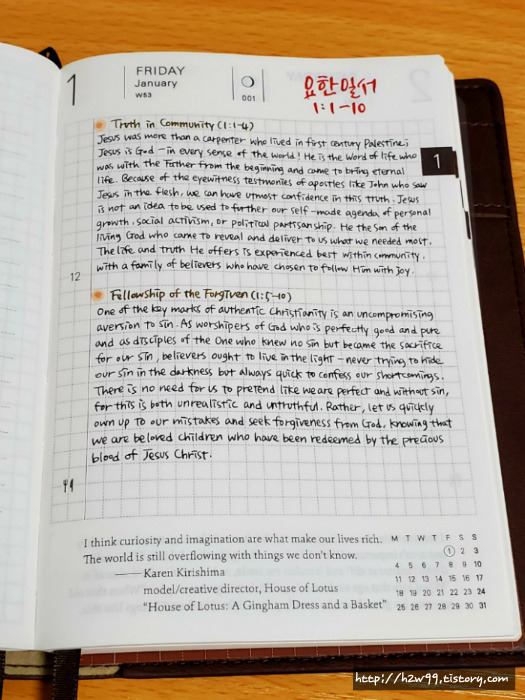 1
FRIDAY
January
W53
001
요한일서
1:1-10
Truth in Community (1:1-4)
Jesus was more than a carpenter who lived in first century Palestine;
Jesus is God - in every sense of the world! He is the Word of life who
was with the Father from the beginning and came to bring eternal
life. Because of the eyewitness testimonies of apostles like John who saw
Jesus in the flesh, we can have utmost confidence in this truth. Jesus
is not an idea to be used to further our self-made agenda of personal
growth, social activism, or political partisanship. He the Son of the
living God who came to reveal and deliver to us what we needed most.
The life and truth He offers is experienced best within community,
with a family of believers who have chosen to follow Him with joy.
1
12
Fellowship of the Forgiven (1:5-10)
One of the key marks of authentic Christianity is an uncompromising
aversion to sin. As worshipers of God who is perfectly good and pure
and as disciples of the One who knew no sin but became the sacrifice
for our sin, believers ought to live in the light - never trying to hide
our sin in the darkness but always quick to confess our shortcomings.
There is no need for us to pretend like we are perfect and without sin,
for this is both unrealistic and untruthful. Rather, let us quickly
own up to our mistakes and seek forgiveness from God, knowing that
we are beloved children who have been redeemed by the precious
blood of Jesus Christ.
I think curiosity and imagination are what make our lives rich.
The world is still overflowing with things we don't know.
—— Karen Kirishima
model/creative director, House of Lotus
"House of Lotus: A Gingham Dress and a Basket"
M T W T F S S
1 2 3
4 5 6 7 8 9 10
11 12 13 14 15 16 17
18 19 20 21 22 23 24
25 26 27 28 29 30 31
http://h2w99.tistory.com